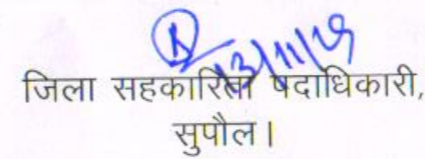 13/11/25
जिला सहकारिता पदाधिकारी,
सुपौल।